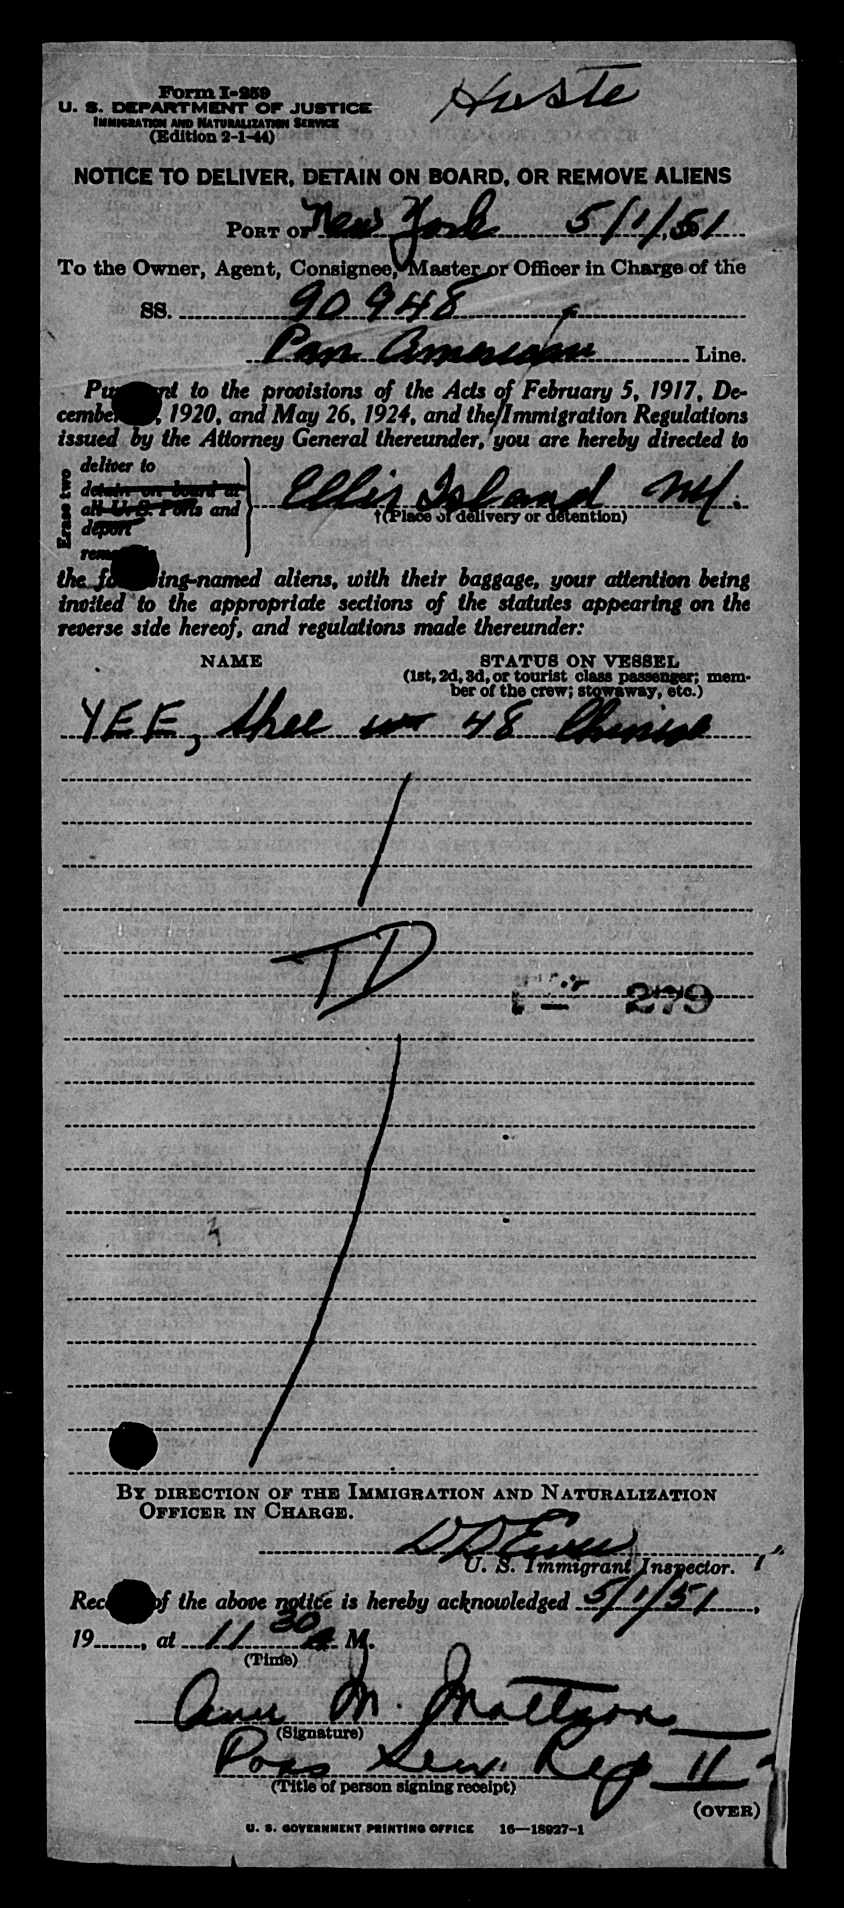 Form I-259
Huste
U. S. DEPARTMENT OF JUSTICE
IMMIGRATION AND NATURALIZATION SERVICE
(Edition 2-1-44)
NOTICE TO DELIVER, DETAIN ON BOARD, OR REMOVE ALIENS
PORT OF New York 5/1/51
To the Owner, Agent, Consignee, Master or Officer in Charge of the
SS. 90948
Pan American Line.
to the provisions of the Acts of February 5, 1917, De-
cember , 1920, and May 26, 1924, and the Immigration Regulations
issued by the Attorney General thereunder, you are hereby directed to
Erase two
deliver to
detain on board at
all U. S. Ports and
deport
Ellis Island NY.
†(Place of delivery or detention)
the -named aliens, with their baggage, your attention being
invited to the appropriate sections of the statutes appearing on the
reverse side hereof, and regulations made thereunder:
NAME STATUS ON VESSEL
(1st, 2d, 3d, or tourist class passenger; mem-
ber of the crew; stowaway, etc.)
YEE, Shee 48 Chinese
TD
279
BY DIRECTION OF THE IMMIGRATION AND NATURALIZATION
OFFICER IN CHARGE.
U. S. Immigrant Inspector.
of the above notice is hereby acknowledged 5/1/51,
19, at 11 30 A M.
(Time)
Ann M. Mattson
(Signature)
Pass Serv. Rep II
(Title of person signing receipt)
(OVER)
U. S. GOVERNMENT PRINTING OFFICE 16—18927-1